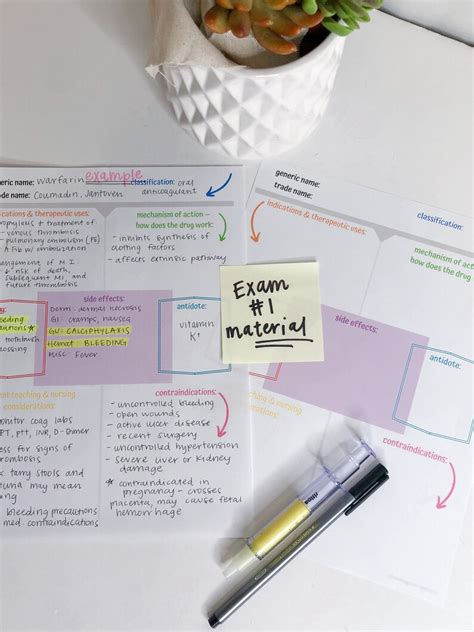 generic name: warfarin example
classification: oral anticoagulant
trade name: Coumadin, Jantoven
indications & therapeutic uses:
treatment of
- venous thrombosis
- pulmonary embolism (PE)
A Fib w/ embolization
management of M.I.
↓ risk of death,
subsequent MI, and
future thrombosis
mechanism of action –
how does the drug work:
- inhibits synthesis of
clotting factors
- affects extrinsic pathway
bleeding
precautions *
toothbrush
flossing
side effects:
Derm: dermal necrosis
GI: cramps, nausea
GU: CALCIPHYLAXIS
Hemat: BLEEDING
Misc: Fever
antidote:
vitamin
K+
teaching & nursing
considerations:
monitor coag labs
PT, ptt, INR, D-Dimer
assess for signs of
thrombosis
tarry stools and
may mean
bleeding precautions
med. contraindications
contraindications:
- uncontrolled bleeding
- open wounds
- active ulcer disease
- recent surgery
- uncontrolled hypertension
- severe liver or kidney
damage
* contraindicated in
pregnancy - crosses
placenta, may cause fetal
hemorrhage
Exam
#1
material
generic name:
trade name:
classification:
indications & therapeutic uses:
mechanism of action
how does the drug
side effects:
antidote:
contraindications: